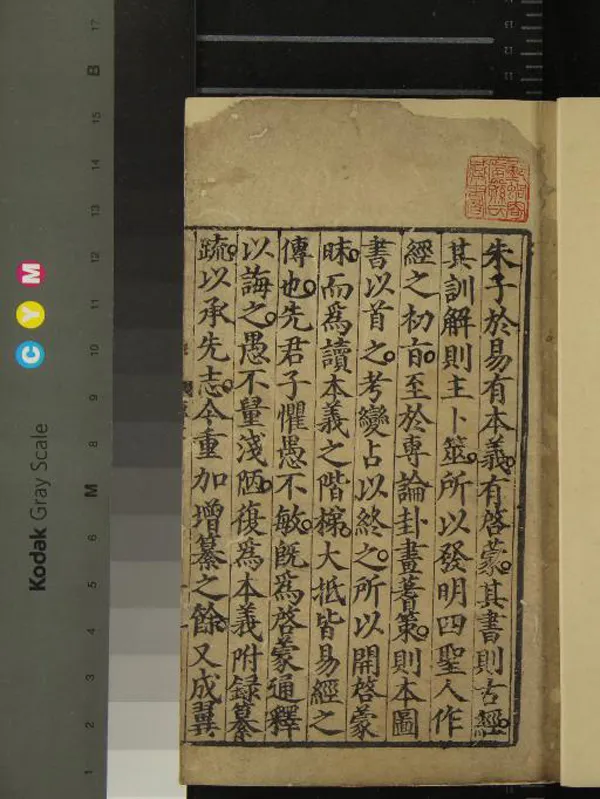 朱子於易有本義。有啓蒙。其書則古經。
其訓解則主卜筮。所以發明四聖人作
經之初旨。至於專論卦畫蓍策。則本圖
書以首之。考變占以終之。所以開啓蒙
昧。而爲讀本義之階梯。大抵皆易經之
傳也。先君子懼愚不敏。旣爲啓蒙通釋
以誨之。愚不量淺陋。復爲本義附錄纂
疏。以承先志。今重加增纂之餘。又成翼
Kodak Gray Scale
C Y M
17
B
15
14
13
12
11
10
9
8
M
6
5
4
3
2
1